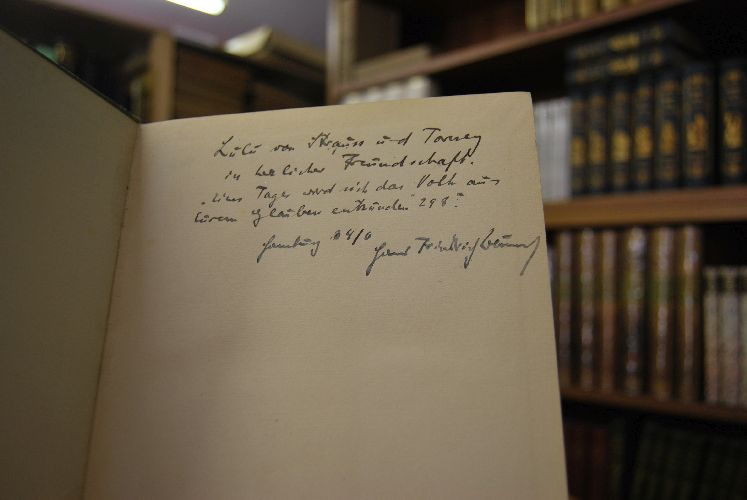 Lulu von Strauss und Torney
in herzlicher Freundschaft.
„Eines Tages wird sich das Volk aus
eurem Glauben entzünden" 298.
Hamburg Hans Friedrich Blunck